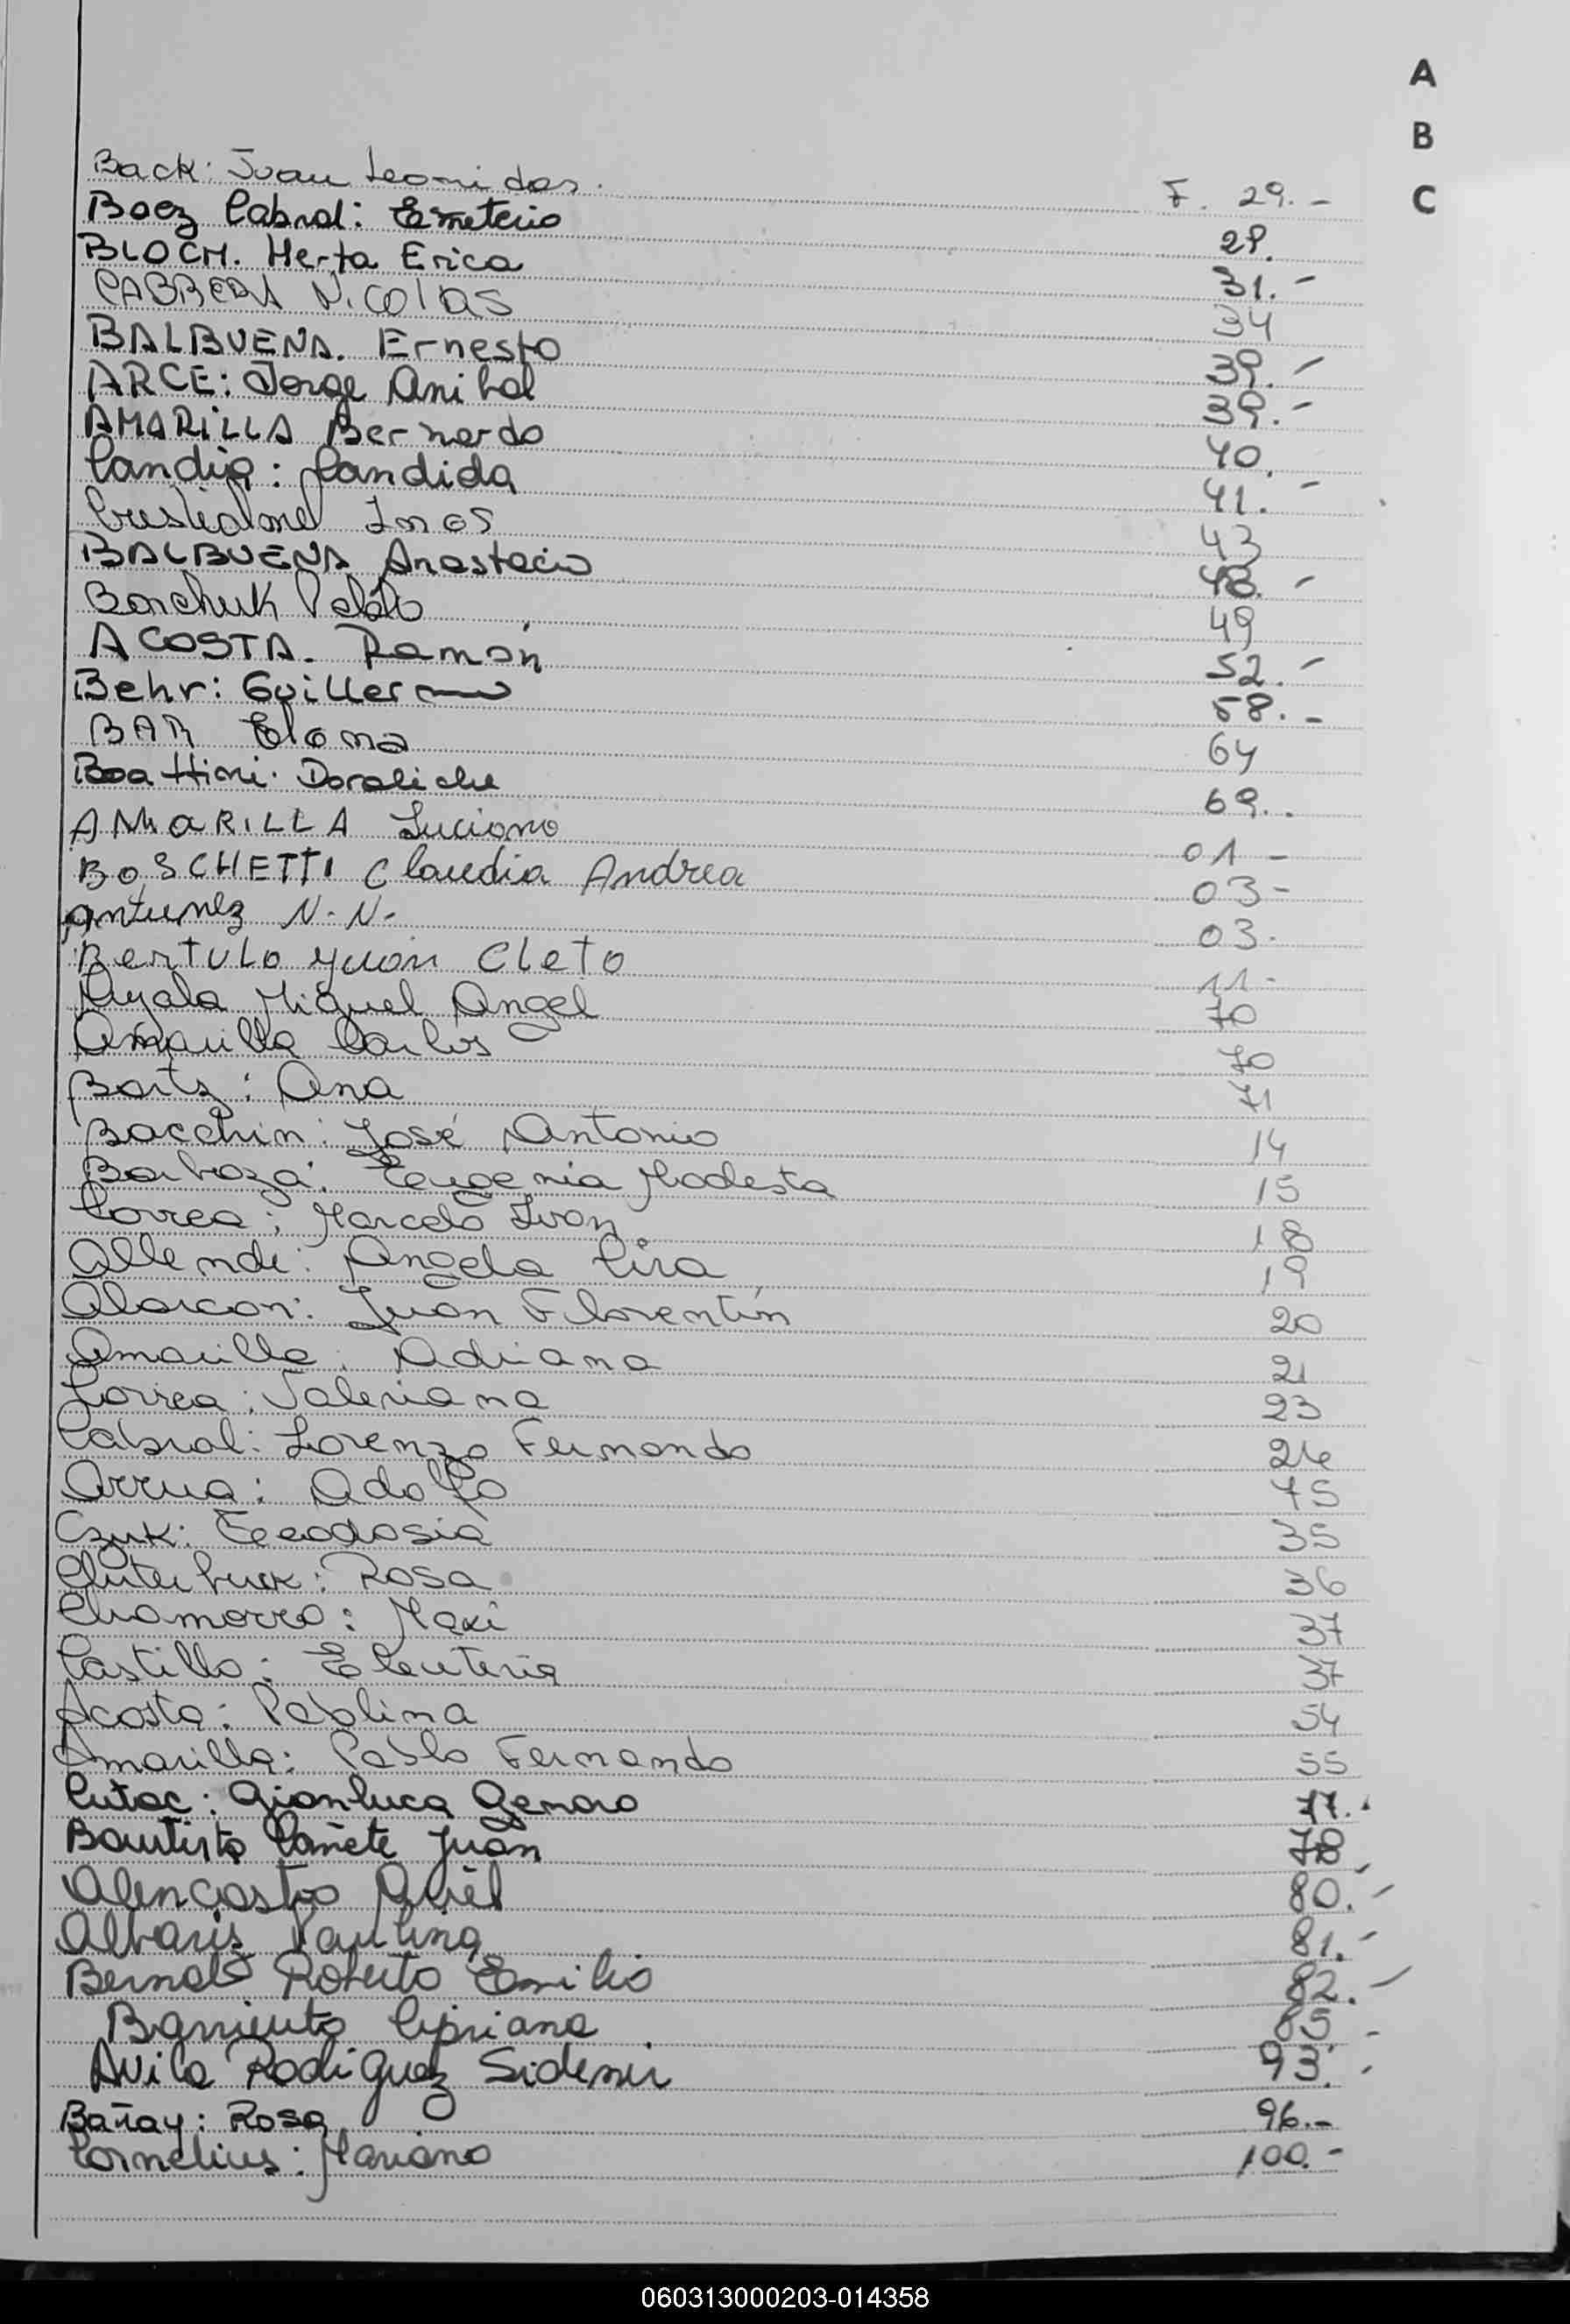 A
B
C
Back: Juan Leonidas. F. 29.-
Baez Cabral: Emeterio 29.
BLOCH. Herta Erica 31.-
CABRERA NICOLAS 34
BALBUENA. Ernesto 39.-
ARCE: Jorge Anibal 39.-
AMARILLA Bernardo 40.
Candia: Candida 41.-
Ines 43
BALBUENA Anastacio 48.-
Bonchuk Pablo 49
ACOSTA. Ramón 52.-
Behr: Guillermo 58.-
BAR Elena 64
Boattini. Doraliche 69..
AMARILLA Luciano 01-
BOSCHETTI Claudia Andrea 03-
Antunez N.N- 03.
Bertulo Juan Cleto 11-
Ayala Miguel Angel 70
Amarilla Carlos 70
Bartz: Ana 71
Bacchin: José Antonio 14
Barboza: Eugenia Modesta 15
Correa: Marcelo Ivan 18
Allende: Angela Cira 19
Alarcon: Juan Florentín 20
Amarilla: Adriana 21
Correa: Valeriana 23
Cabral: Lorenzo Fernando 24
Arrua: Adolfo 75
Czuk: Teodosia 35
Rosa 36
Chamorro: Maxi 37
Castillo: Eleuteria 37
Acosta: Pablina 54
Amarilla: Pablo Fernando 55
Cutac: Gianluca Genaro 77.-
Bautista Cañete Juan 78
Alencastro Ariel 80.-
Albaris Paulina 81.-
Bernal Roberto Emilio 82.-
Barriento Cipriana 85-
Avila Rodriguez Sidemir 93.-
Bañay: Rosa 96.-
Cornelius: Mariano 100.-
060313000203-014358